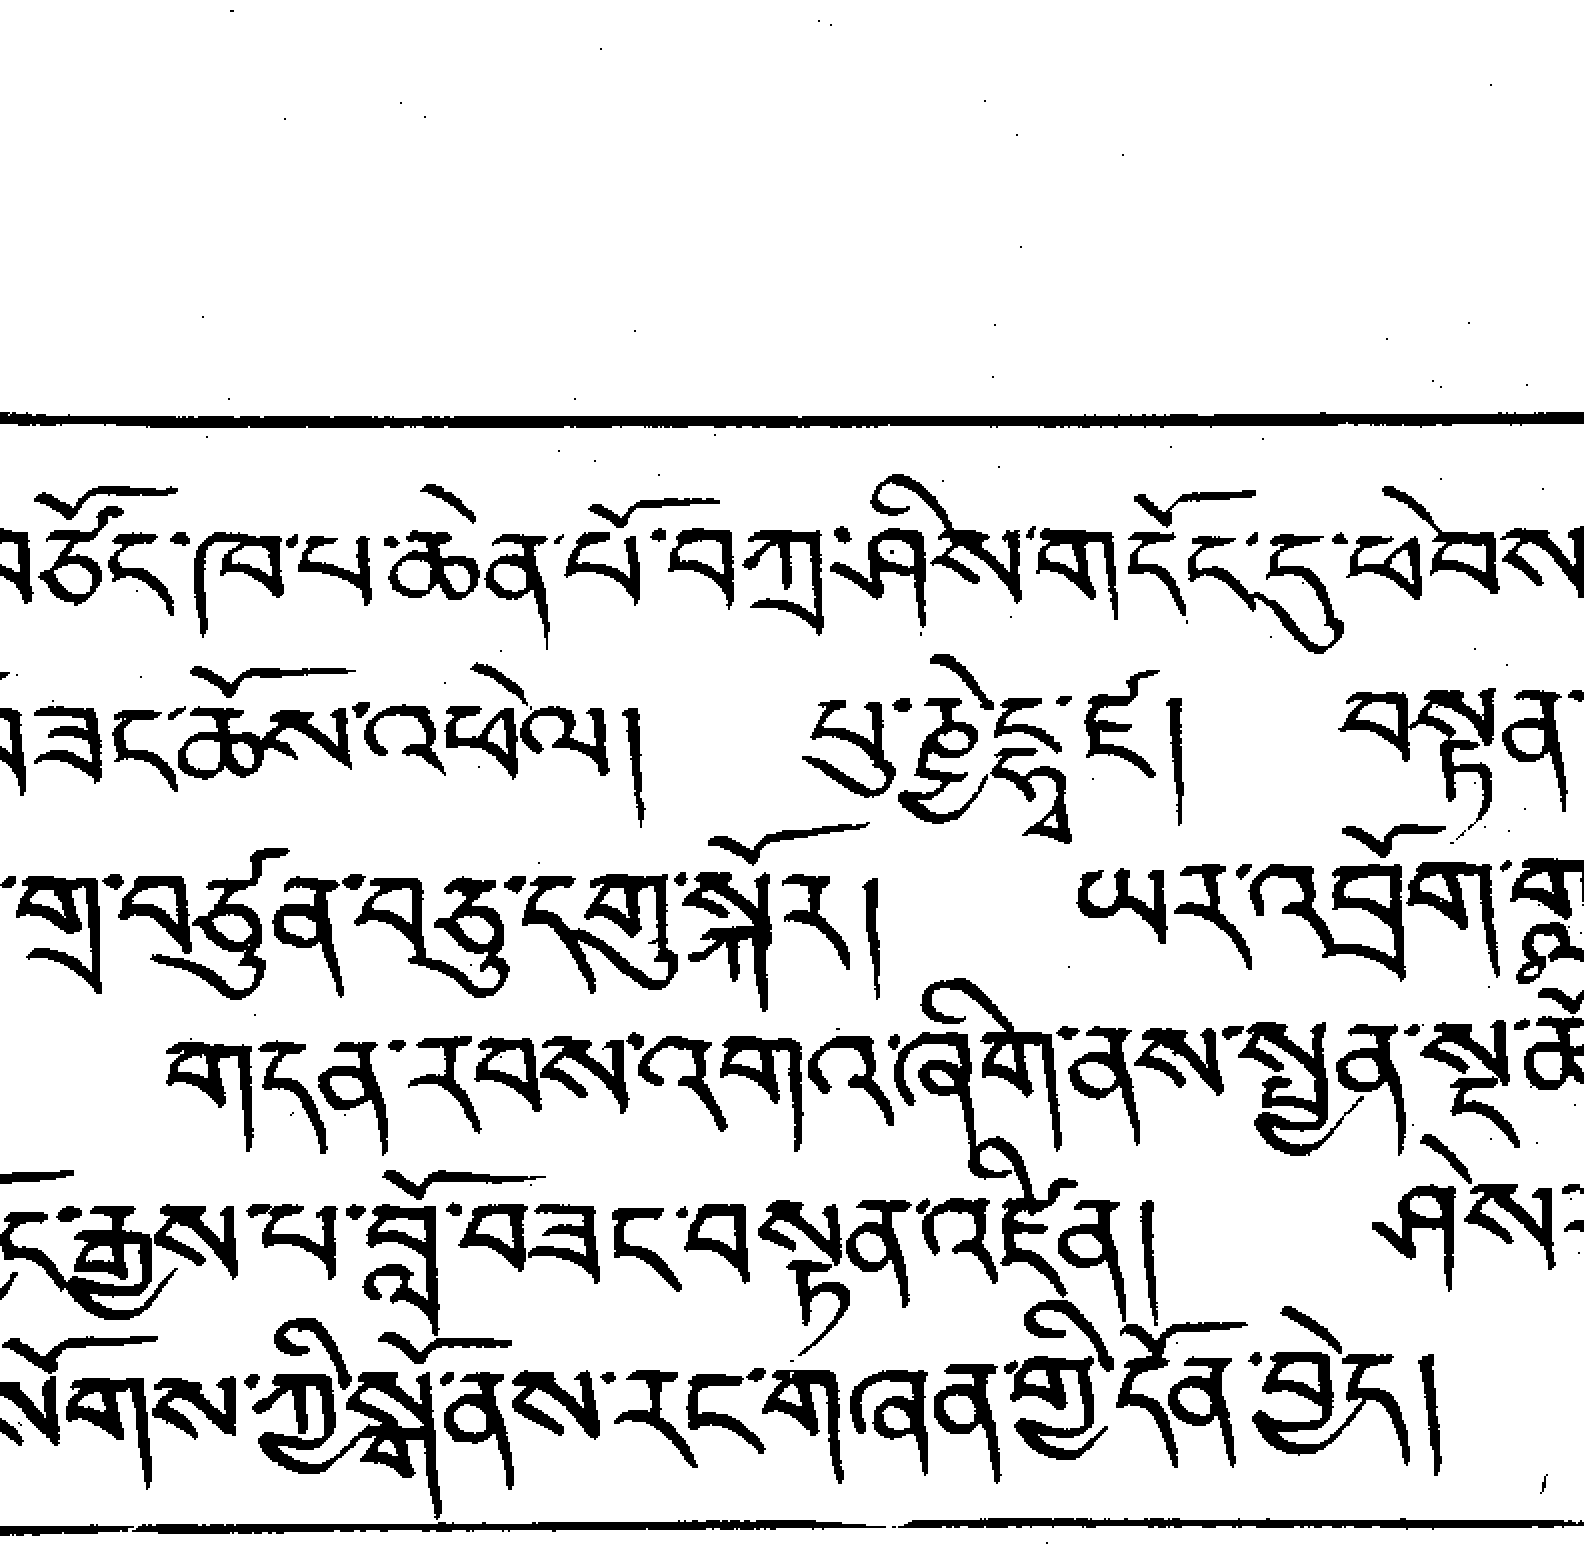 གཙོང་ཁ་པ་ཆེན་པོ་བཀྲ་ཤིས་གདོང་དུ་ཕེབས
བཟང་ཆོས་འཕེལ།    པུ་ཎྱེ་དྷྭ་ཛ།    བསྟན་
གྲྭ་བཙུན་བཅུ་དགུ་སྐོར།    ཡར་འབྲོག་
གདན་རབས་འགའ་ཞིག་ནས་སྤྱན་སྔ་
རྒྱས་པ་བློ་བཟང་བསྟན་འཛིན།    ཤེས་
སོགས་ཀྱི་སྒོ་ནས་རང་གཞན་གྱི་དོན་བྱེད།